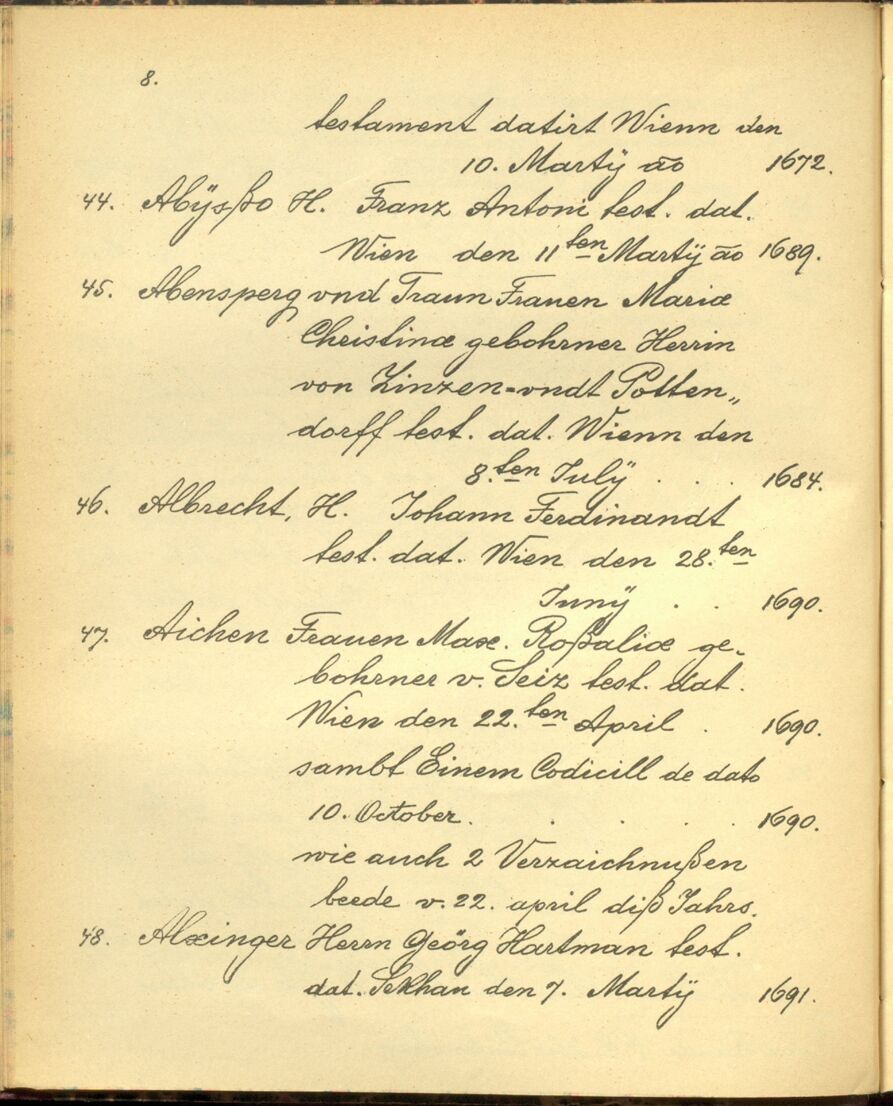 8.
testament datirt Wienn den
10. Martÿ āo 1672.
44. Abÿsßo H. Franz Antoni test. dat.
Wien den 11ten Martÿ āo 1689.
45. Abensperg vnd Traun Frauen Mariæ
Christinæ gebohrner Herrin
von Zinzen=vndt Potten„
dorff test. dat. Wienn den
8.ten Julÿ . . . 1684.
46. Albrecht, H. Johann Ferdinandt
test. dat. Wien den 28.ten
Junÿ . . 1690.
47. Aichen Frauen Max. Roßaliæ ge„
bohrner v. Seiz test. dat.
Wien den 22.ten April . 1690.
sambt Einem Codicill de dato
10. October . . . . . 1690.
wie auch 2 Verzaichnußen
beede v. 22. april diß Jahrs.
48. Alxinger Herrn Geörg Hartman test.
dat. Sekhau den 7. Martÿ 1691.